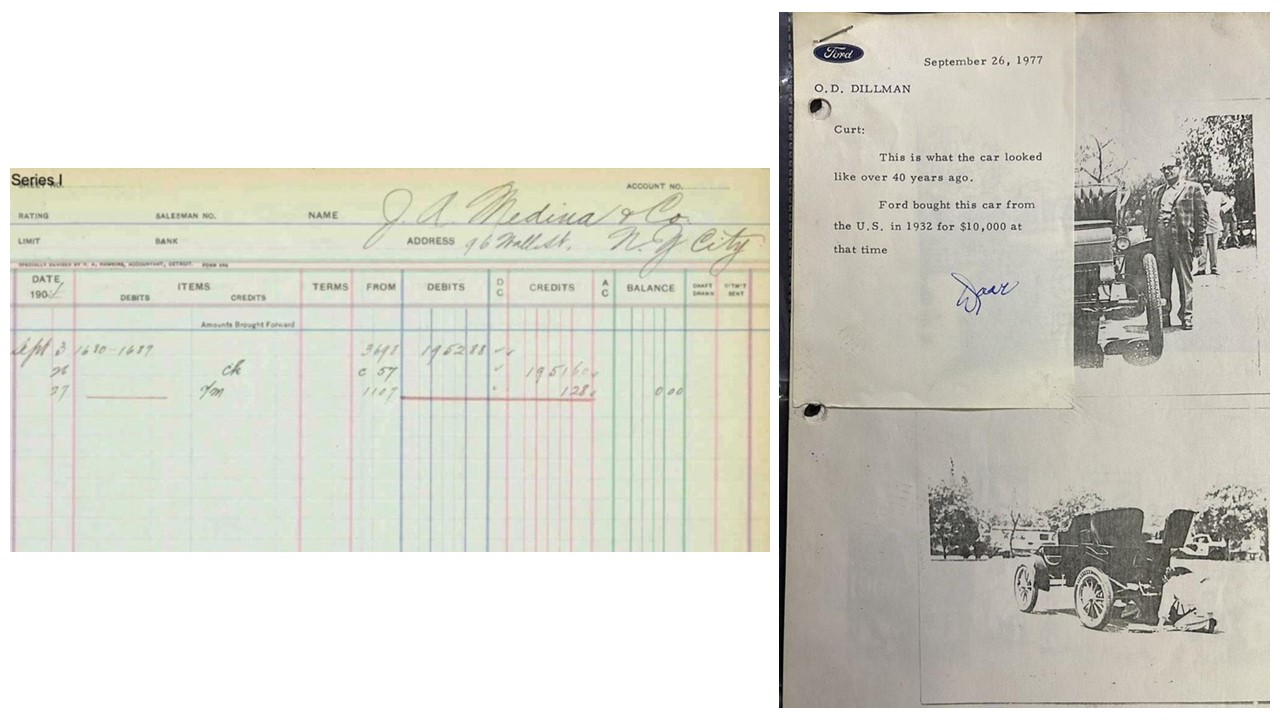 Series I
ACCOUNT NO.
RATING SALESMAN NO. NAME J. A. Medina & Co.
LIMIT BANK ADDRESS 96 Wall St. N.Y City
SPECIALLY DEVISED BY H. A. HAWKINS, ACCOUNTANT, DETROIT.
DATE ITEMS TERMS FROM DEBITS D C CREDITS A C BALANCE DRAFT DRAWN ST'M'T SENT
190 DEBITS CREDITS
Amounts Brought Forward
Sept 3 1680-1689 3698 1952 88
26 ck c 57 1951 60
27 1107 1 28 0 00
Ford
September 26, 1977
O.D. DILLMAN
Curt:
This is what the car looked
like over 40 years ago.
Ford bought this car from
the U.S. in 1932 for $10,000 at
that time